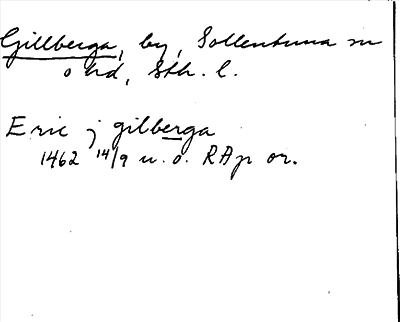 Gillberga, by, Sollentuna sn
o hd, Sth. l.
Eric j gilberga
1462 14/9 u. o. RAp or.